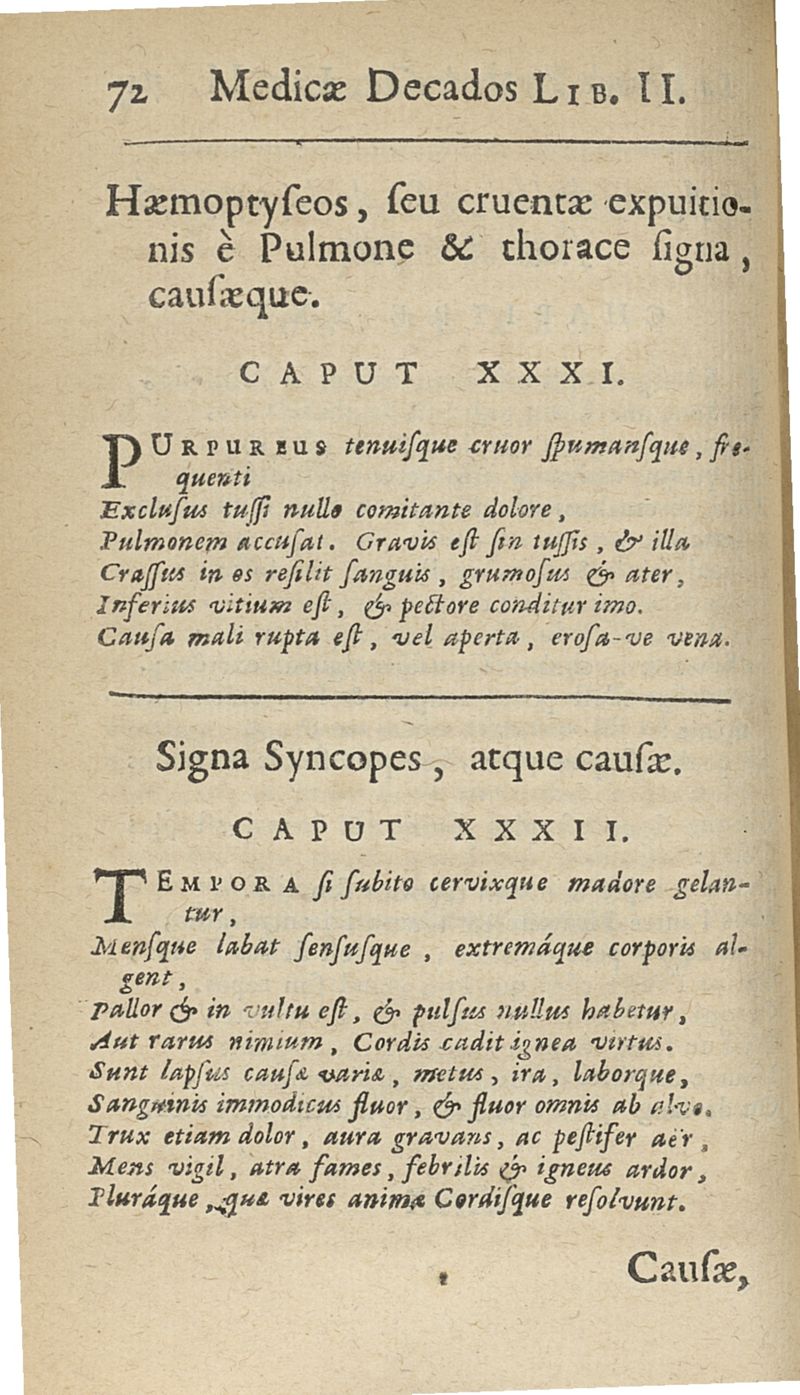 72 Medicæ Decados LIB. II.
Hæmoptyſeos, ſeu cruentæ expuitio-
nis è Pulmone & thorace ſigna,
cauſæque.
CAPUT XXXI.
PURPUREUS tenuiſque cruor ſpumanſque, fre-
quenti
Excluſus tuſſi nullo comitante dolore,
Pulmonem accuſat. Gravis eſt ſin tuſſis, & illa
Craſſus in os reſilit ſanguis, grumoſus & ater,
Inferius vitium eſt, & pectore conditur imo.
Cauſa mali rupta eſt, vel aperta, eroſa-ve vena.
Signa Syncopes, atque cauſæ.
CAPUT XXXII.
TEMPORA ſi ſubito cervixque madore gelan-
tur,
Menſque labat ſenſuſque, extremáque corporis al-
gent,
Pallor & in vultu eſt, & pulſus nullus habetur,
Aut rarus nimium, Cordis cadit ignea virtus.
Sunt lapſus cauſæ variæ, metus, ira, laborque,
Sanguinis immodicus fluor, & fluor omnis ab alvo.
Trux etiam dolor, aura gravans, ac peſtifer aër,
Mens vigil, atra fames, febrilis & igneus ardor,
Pluráque, quæ vires animæ Cordiſque reſolvunt.
Cauſæ,